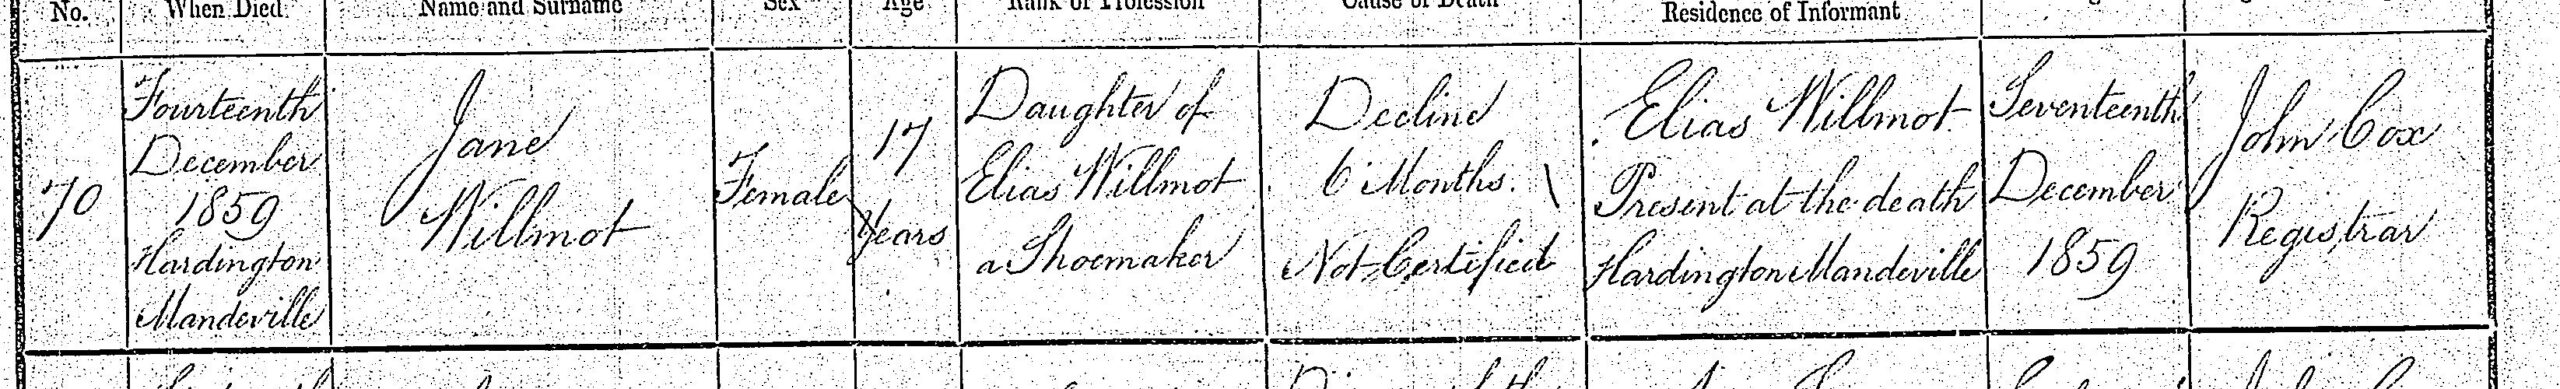 No.
When Died
Name and Surname
Sex
Age
Rank or Profession
Cause of Death
Residence of Informant
70
Fourteenth
December
1859
Hardington
Mandeville
Jane
Willmot
Female
17
Years
Daughter of
Elias Willmot
a Shoemaker
Decline
6 Months.
Not Certified
Elias Willmot
Present at the death
Hardington Mandeville
Seventeenth
December
1859
John Cox
Registrar